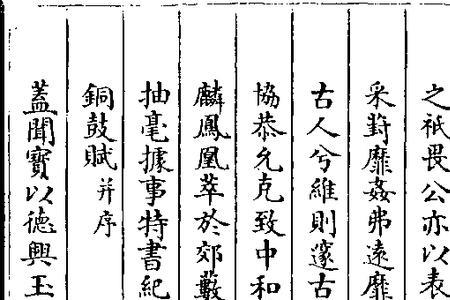 之祇畏公亦以表
采葑靡姦弗遠靡
古人兮維則邃古
協恭允克致中和
麟鳳凰萃於郊藪
抽毫據事特書紀
銅鼓賦并序
蓋聞寶以德興玉